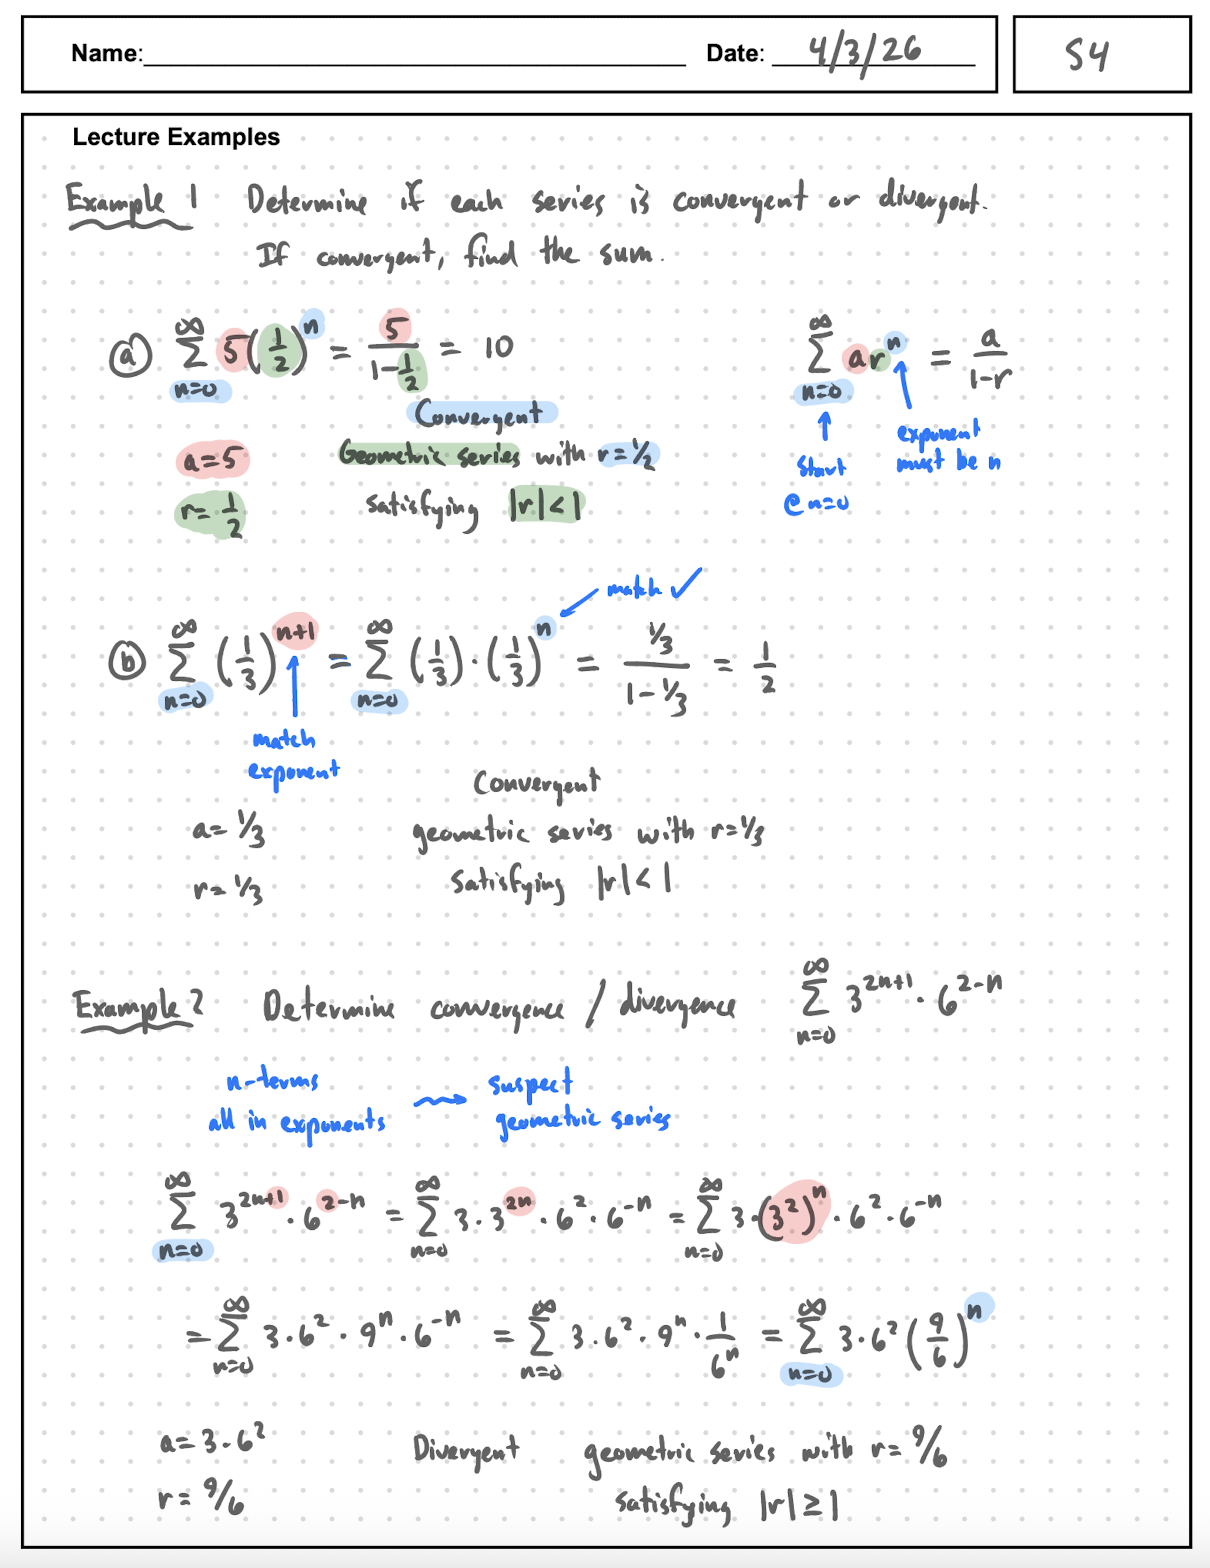 Name: Date: 4/3/26 S4
Lecture Examples
Example 1 Determine if each series is convergent or divergent.
If convergent, find the sum.
(a) ∑_{n=0}^{∞} 5(1/2)^n = 5/(1-1/2) = 10
∑_{n=0}^{∞} ar^n = a/(1-r)
Convergent
a=5 Geometric series with r=1/2
r=1/2 satisfying |r|<1
start
@ n=0
exponent
must be n
match ✓
(b) ∑_{n=0}^{∞} (1/3)^{n+1} = ∑_{n=0}^{∞} (1/3)·(1/3)^n = (1/3)/(1-1/3) = 1/2
match
exponent
Convergent
a=1/3 geometric series with r=1/3
r=1/3 satisfying |r|<1
Example 2 Determine convergence / divergence ∑_{n=0}^{∞} 3^{2n+1}·6^{2-n}
n-terms
all in exponents
suspect
geometric series
∑_{n=0}^{∞} 3^{2n+1}·6^{2-n} = ∑_{n=0}^{∞} 3·3^{2n}·6^2·6^{-n} = ∑_{n=0}^{∞} 3·(3^2)^n·6^2·6^{-n}
= ∑_{n=0}^{∞} 3·6^2·9^n·6^{-n} = ∑_{n=0}^{∞} 3·6^2·9^n·1/6^n = ∑_{n=0}^{∞} 3·6^2(9/6)^n
a=3·6^2 Divergent geometric series with r=9/6
r=9/6 satisfying |r|≥1